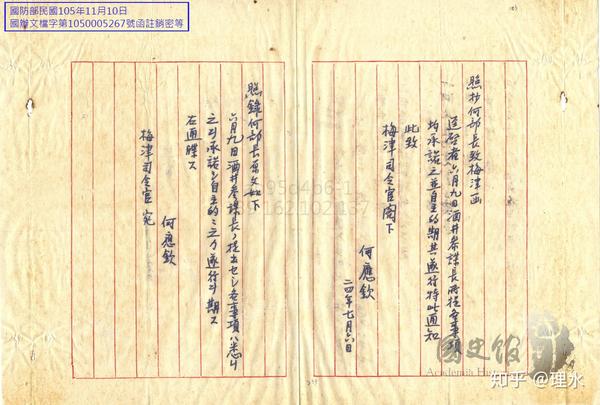 國防部民國105年11月10日
國辦文檔字第1050005267號函註銷密等
照抄何部長致梅津函
逕啓者六月九日酒井參謀長所提各事項
均承諾之並自主的期其遂行特此通知
此致
梅津司令官閣下
何應欽
二四年七月六日
照錄何部長原文如下
六月九日酒井參謀長ノ提出セシ各事項ハ悉ク
之ヲ承諾シ自主的ニ之カ遂行ヲ期ス
右通牒ス
何應欽
梅津司令官 宛
國史館
Academia
知乎 @理水